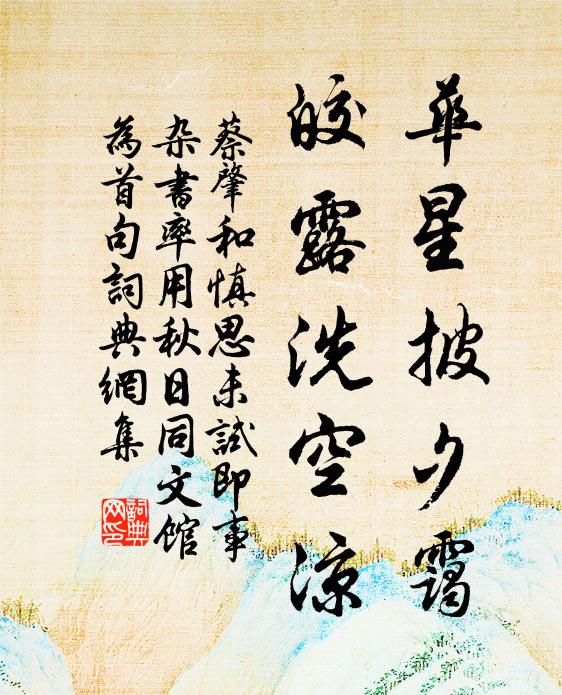 華星披夕靄
皎露洗空涼
蔡肇和慎思未試即事
杂書率用秋日同文馆
為首句詞典網集
詞典網印